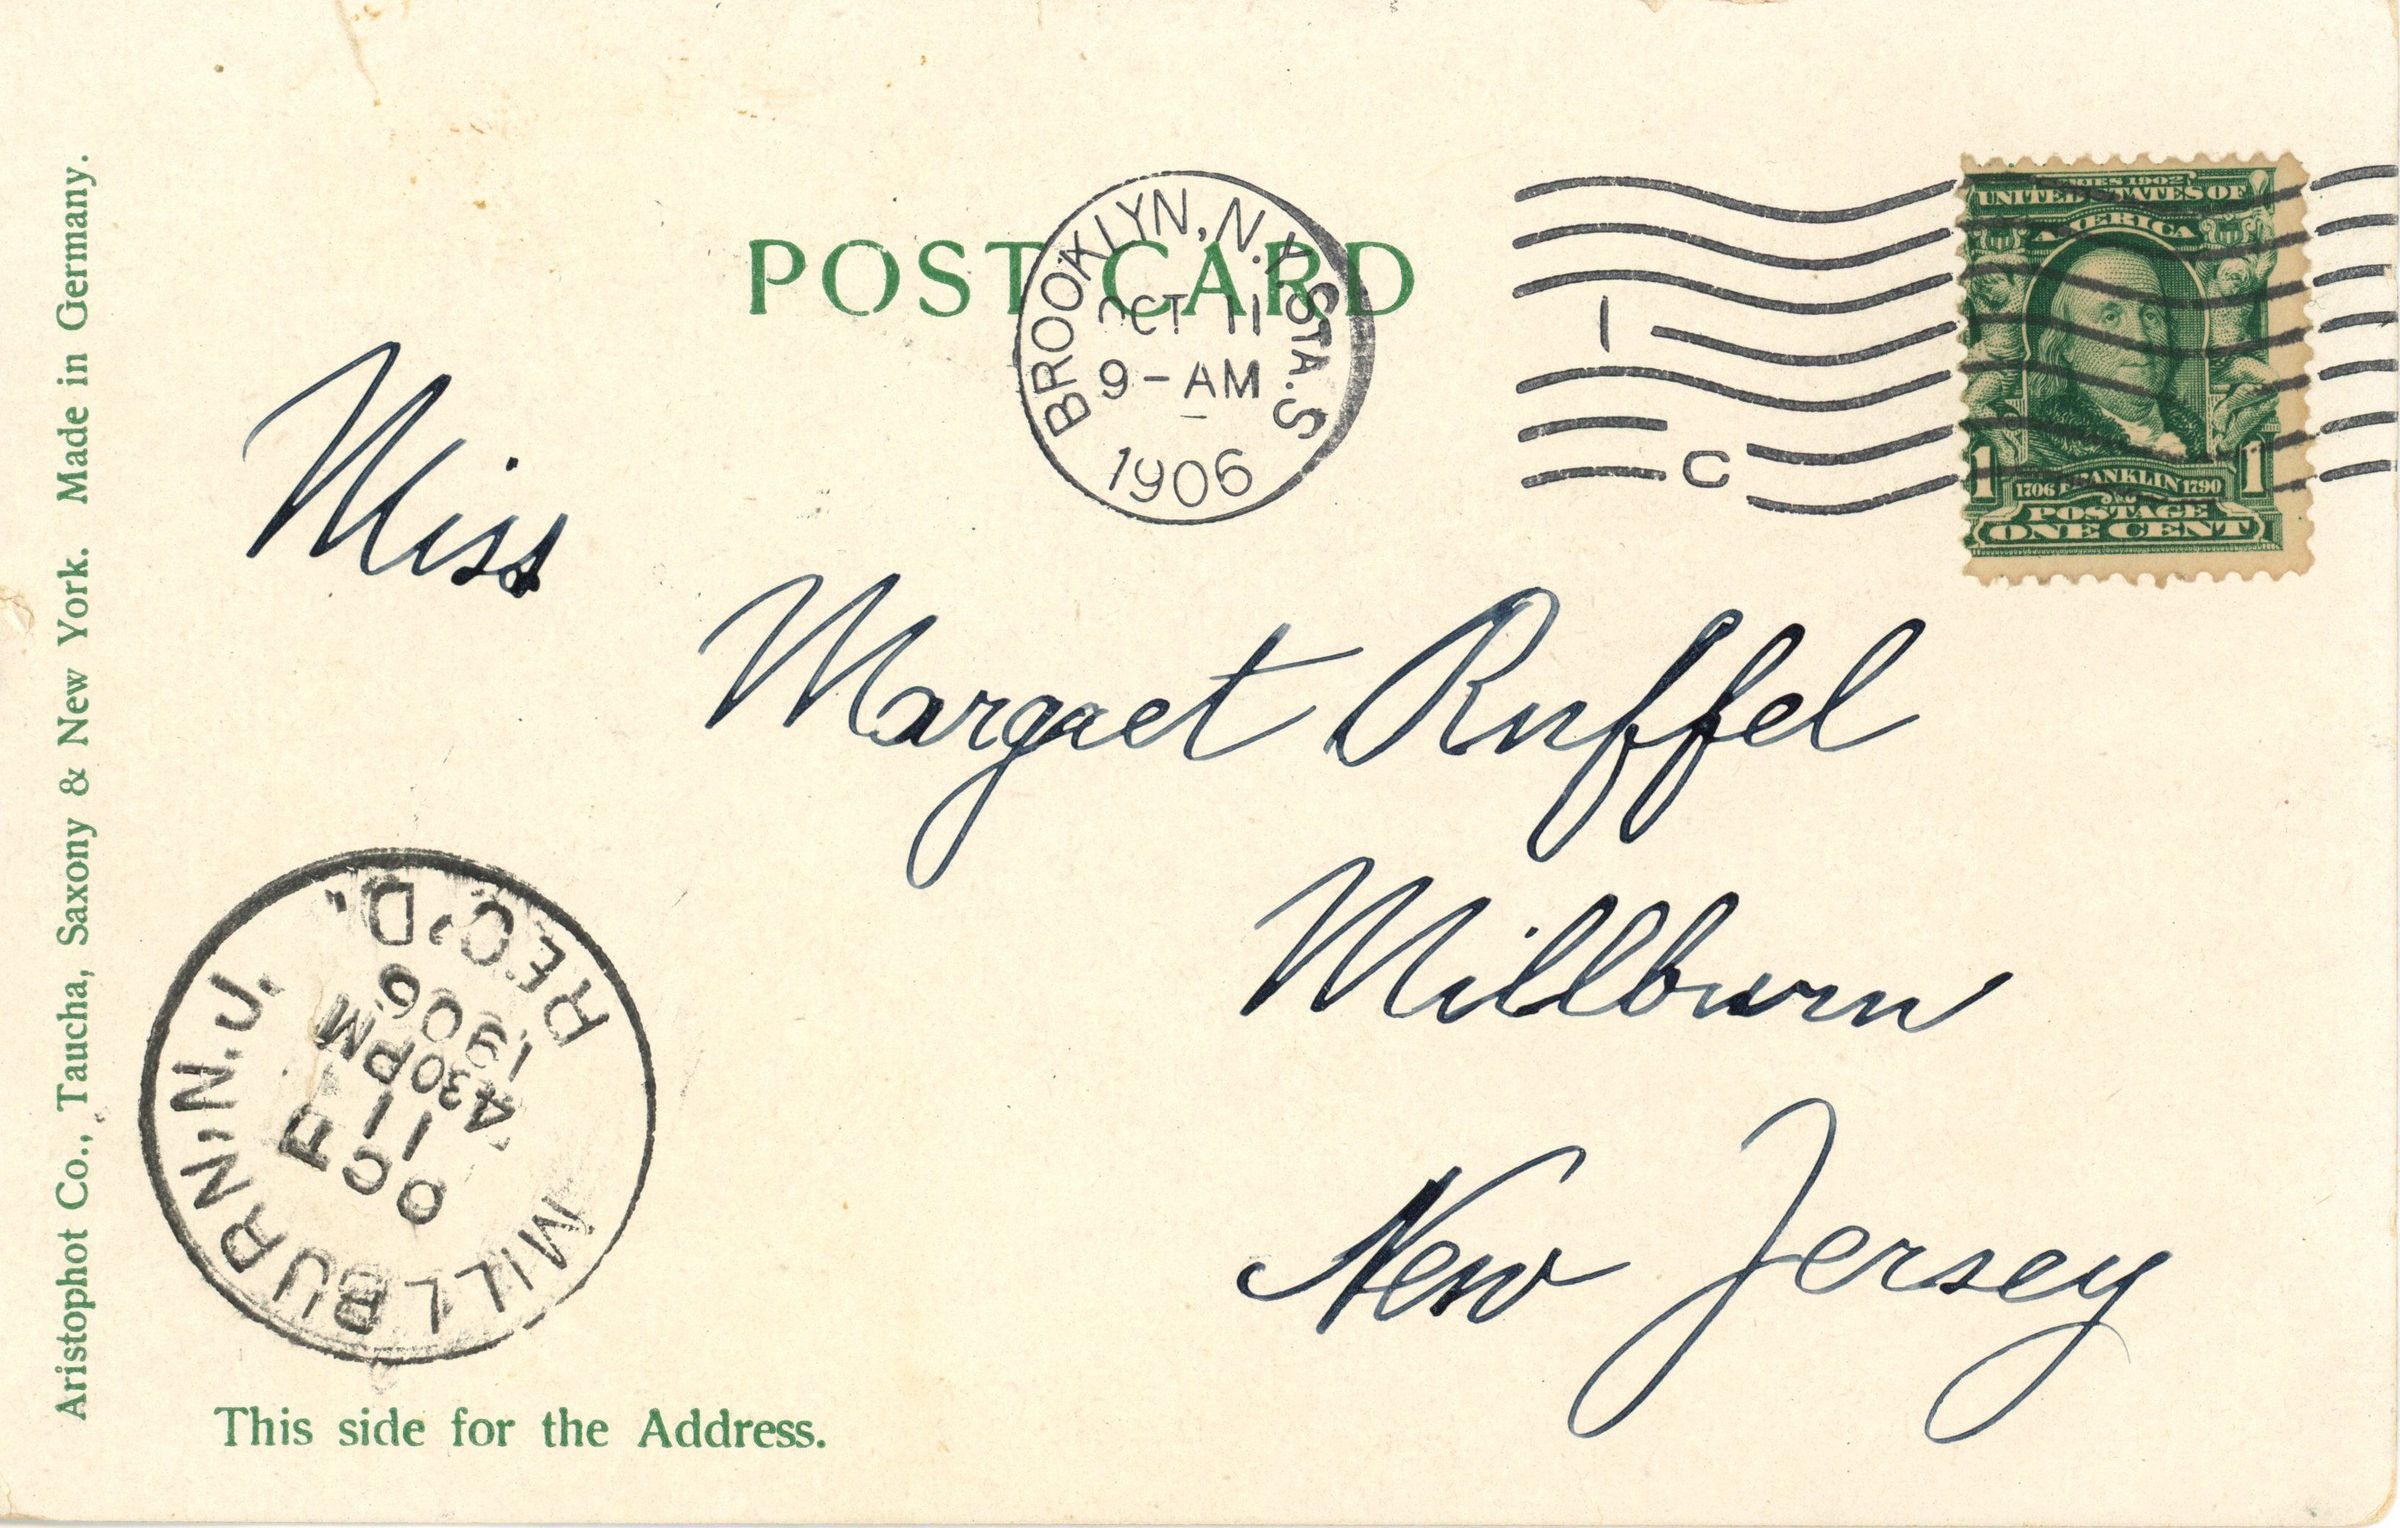 Aristophot Co., Taucha, Saxony & New York. Made in Germany.
POST CARD
BROOKLYN, N.Y. STA. S
OCT 11
9-AM
1906
1
C
SERIES 1902
UNITED STATES OF
AMERICA
1 1
1706 FRANKLIN 1790
POSTAGE
ONE CENT
Miss
Margaet Ruffel
Millburn
New Jersey
MILLBURN, N.J.
OCT
11
430PM
1906
REC'D.
This side for the Address.